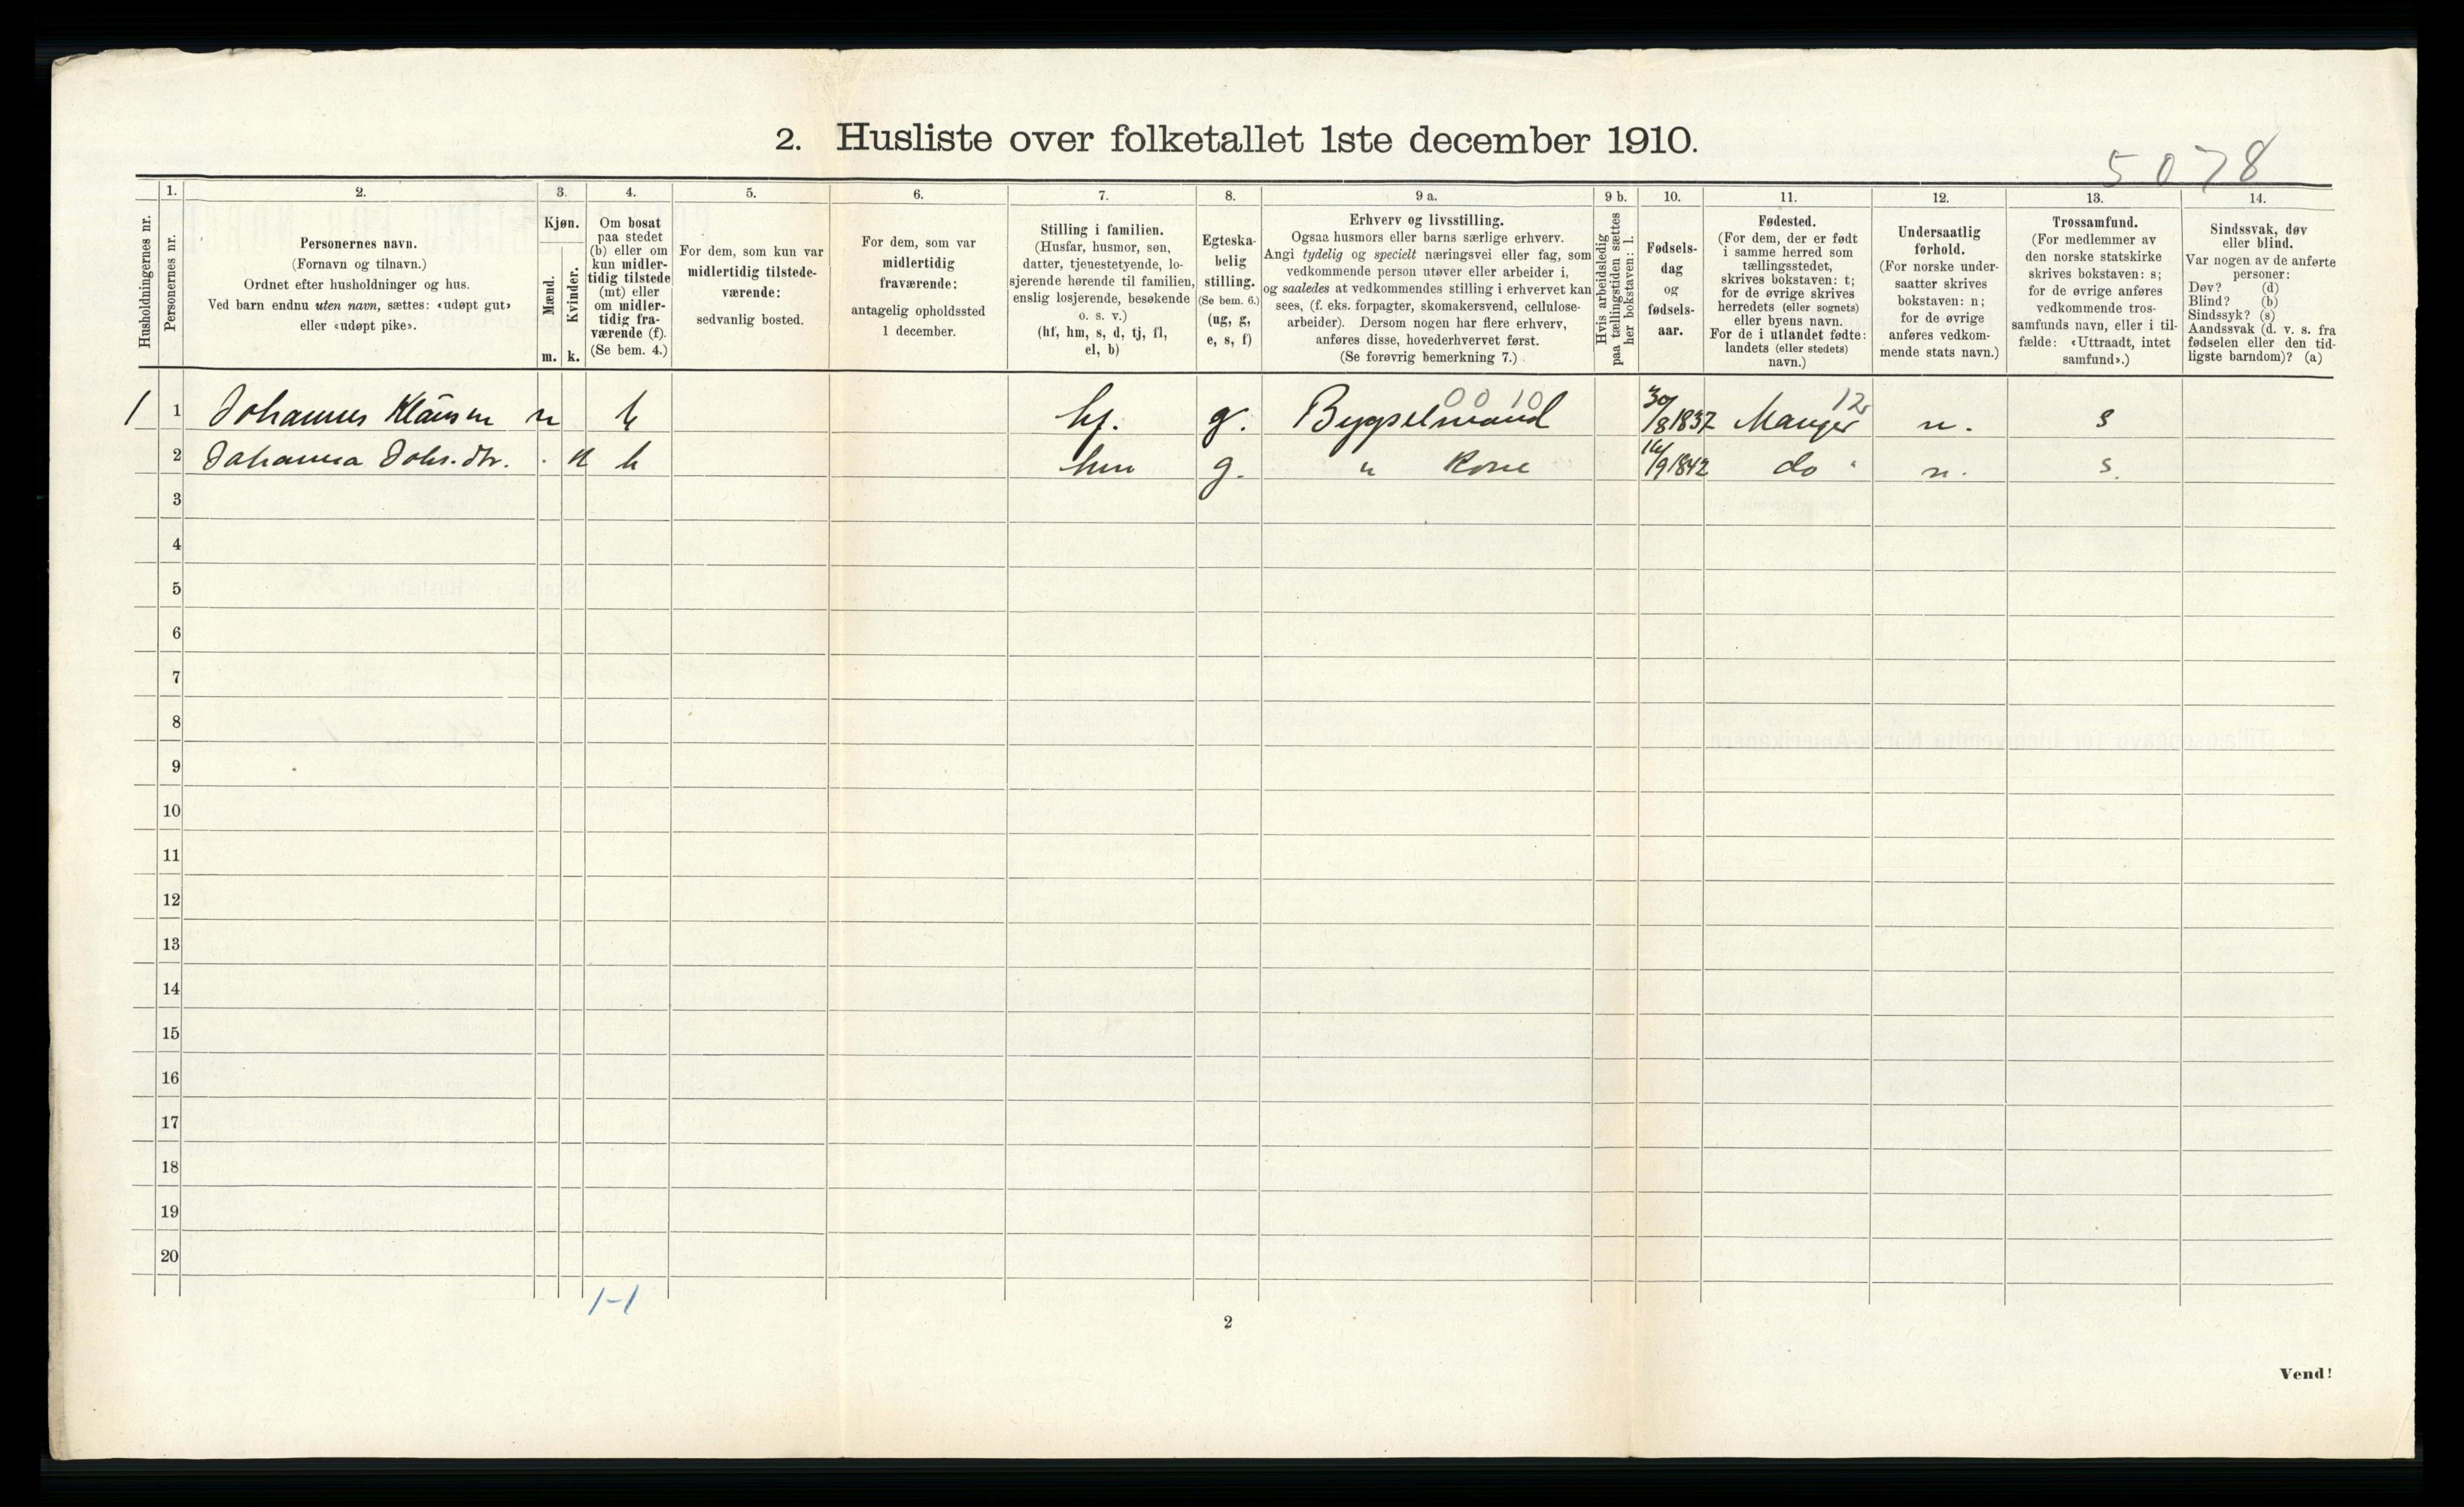 2. Husliste over folketallet 1ste december 1910.
5078
Husholdningernes nr.
1.
Personernes nr.
2.
Personernes navn.
(Fornavn og tilnavn.)
Ordnet efter husholdninger og hus.
Ved barn endnu uten navn, sættes: «udøpt gut»
eller «udøpt pike».
3.
Kjøn.
Mænd.
m.
Kvinder.
k.
4.
Om bosat
paa stedet
(b) eller om
kun midler-
tidig tilstede
(mt) eller
om midler-
tidig fra-
værende (f).
(Se bem. 4.)
5.
For dem, som kun var
midlertidig tilstede-
værende:
sedvanlig bosted.
6.
For dem, som var
midlertidig
fraværende:
antagelig opholdssted
1 december.
7.
Stilling i familien.
(Husfar, husmor, søn,
datter, tjenestetyende, lo-
sjerende hørende til familien,
enslig losjerende, besøkende
o. s. v.)
(hf, hm, s, d, tj, fl,
el, b)
8.
Egteska-
belig
stilling.
(Se bem. 6.)
(ug, g,
e, s, f)
9 a.
Erhverv og livsstilling.
Ogsaa husmors eller barns særlige erhverv.
Angi tydelig og specielt næringsvei eller fag, som
vedkommende person utøver eller arbeider i,
og saaledes at vedkommendes stilling i erhvervet kan
sees, (f. eks. forpagter, skomakersvend, cellulose-
arbeider). Dersom nogen har flere erhverv,
anføres disse, hovederhvervet først.
(Se forøvrig bemerkning 7.)
9 b.
Hvis arbeidsledig
paa tællingstiden sættes
her bokstaven: l.
10.
Fødsels-
dag
og
fødsels-
aar.
11.
Fødested.
(For dem, der er født
i samme herred som
tællingsstedet,
skrives bokstaven: t;
for de øvrige skrives
herredets (eller sognets)
eller byens navn.
For de i utlandet fødte:
landets (eller stedets)
navn.)
12.
Undersaatlig
forhold.
(For norske under-
saatter skrives
bokstaven: n;
for de øvrige
anføres vedkom-
mende stats navn.)
13.
Trossamfund.
(For medlemmer av
den norske statskirke
skrives bokstaven: s;
for de øvrige anføres
vedkommende tros-
samfunds navn, eller i til-
fælde: «Uttraadt, intet
samfund».)
14.
Sindssvak, døv
eller blind.
Var nogen av de anførte
personer:
Døv? (d)
Blind? (b)
Sindssyk? (s)
Aandssvak (d. v. s. fra
fødselen eller den tid-
ligste barndom)? (a)
0010 12
1 1 Johannes m b hf. g. Bygselmand 30/8 1837 Manger n. s
2 Johanna Johs.dtr. k b hm g. " Kone 1842 do n. s.
3
4
5
6
7
8
9
10
11
12
13
14
15
16
17
18
19
20
1-1
2
Vend!